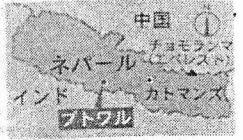 中国
チョモランマ
(エベレスト)
ネパール
インド
カトマンズ
ブトワル